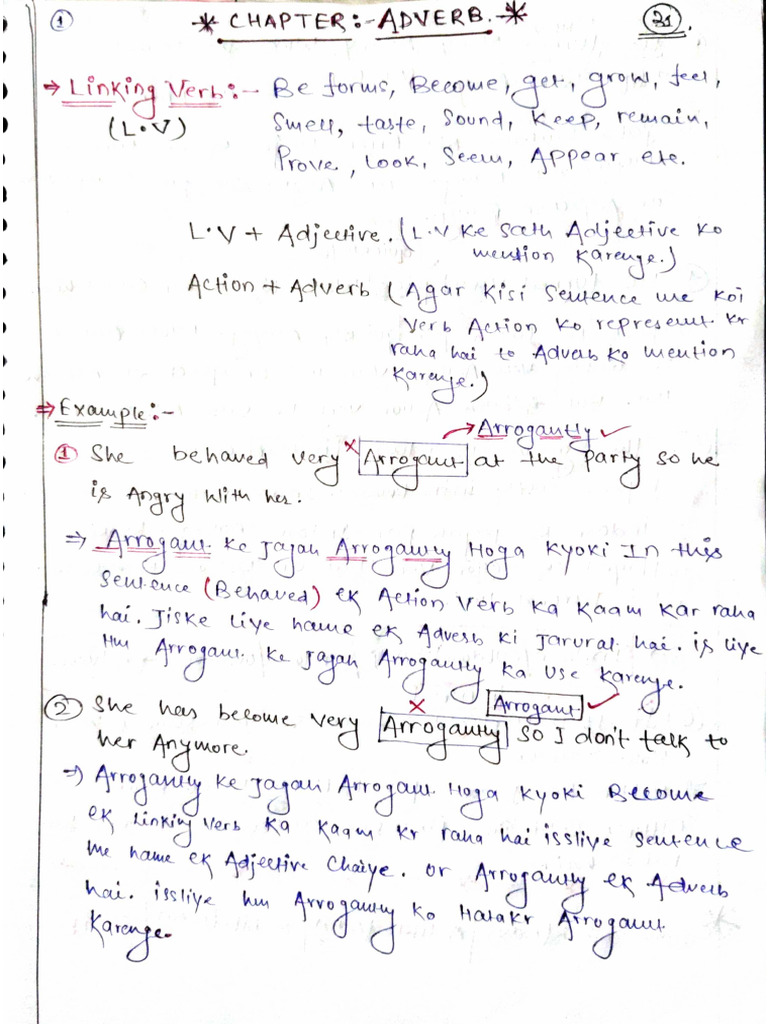 1 * CHAPTER:- ADVERB. * 21.
⇒ Linking Verb:- Be forms, Become, get, grow, feel,
(L.V) Smell, taste, Sound, Keep, remain,
Prove, Look, Seem, Appear etc.
L.V + Adjective. (L.V Ke Sath Adjective Ko
mention Karenge.)
Action + Adverb (Agar Kisi Sentence me Koi
Verb Action Ko represent kr
raha hai to Adverb Ko mention
Karenge.)
⇒ Example:-
→ Arrogantly ✓
① She behaved very × Arrogant at the party so he
is Angry with her.
⇒ Arrogant Ke Jagah Arrogantly Hoga Kyoki In this
Sentence (Behaved) ek Action Verb Ka Kaam Kar raha
hai. Jiske liye hame ek Adverb ki Jarurat hai. is liye
Hm Arrogant Ke Jagah Arrogantly Ka Use Karenge.
× Arrogant ✓
② She has become very Arrogantly so I don't talk to
her Anymore.
⇒ Arrogantly Ke Jagah Arrogant Hoga Kyoki Become
ek Linking Verb Ka Kaam Kr raha hai issliye Sentence
me hame ek Adjective Chaiye. or Arrogantly ek Adverb
hai. issliye hm Arrogantly Ko Hatakr Arrogant
Karenge.